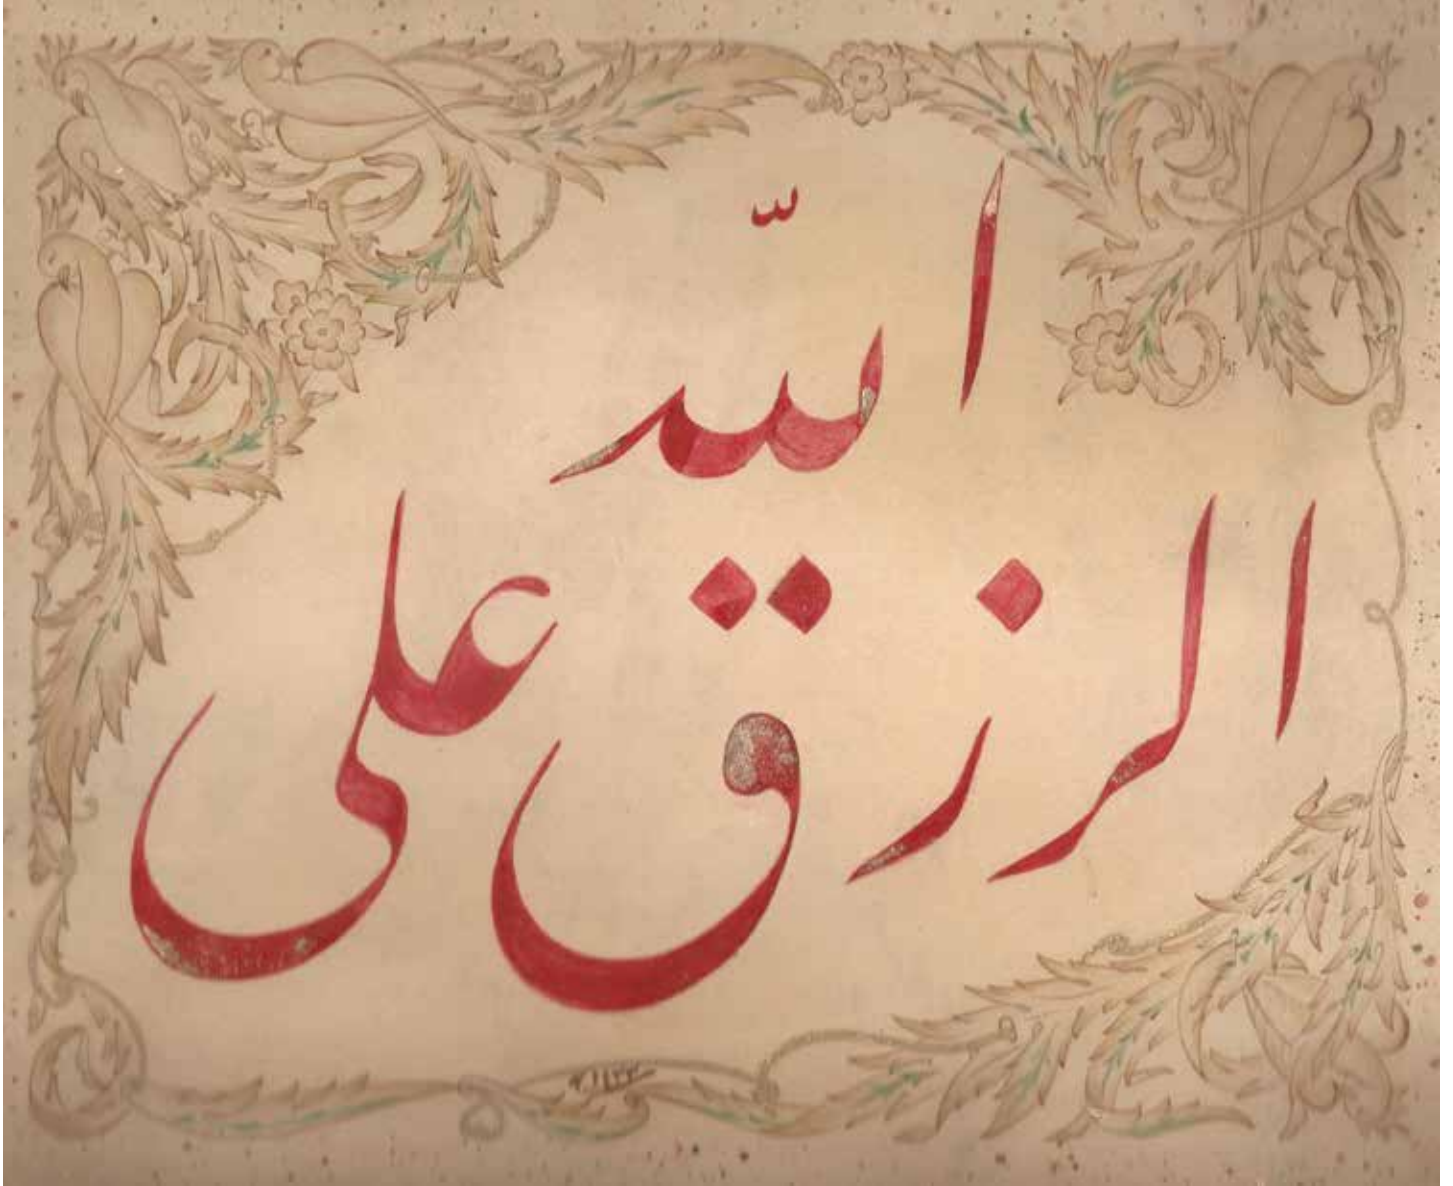 الرزق علی
اللّه